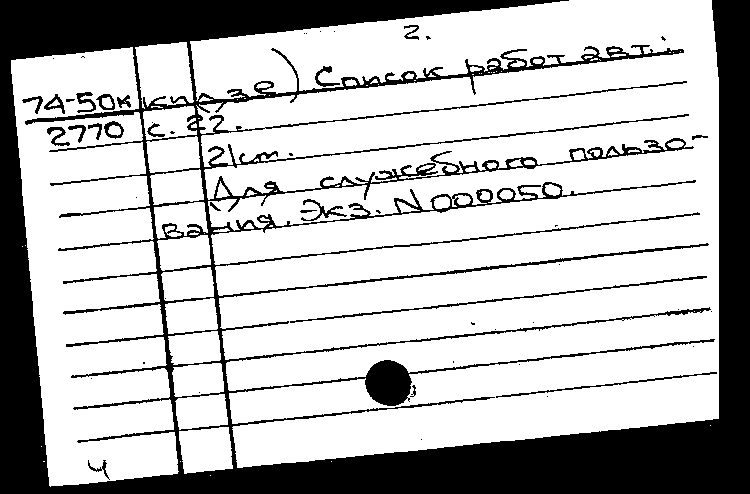 2.
74-50к книзе) Список работ авт.:
2770 с. 22.
21см.
Для служебного пользо-
вания. Экз. N000050.
ч